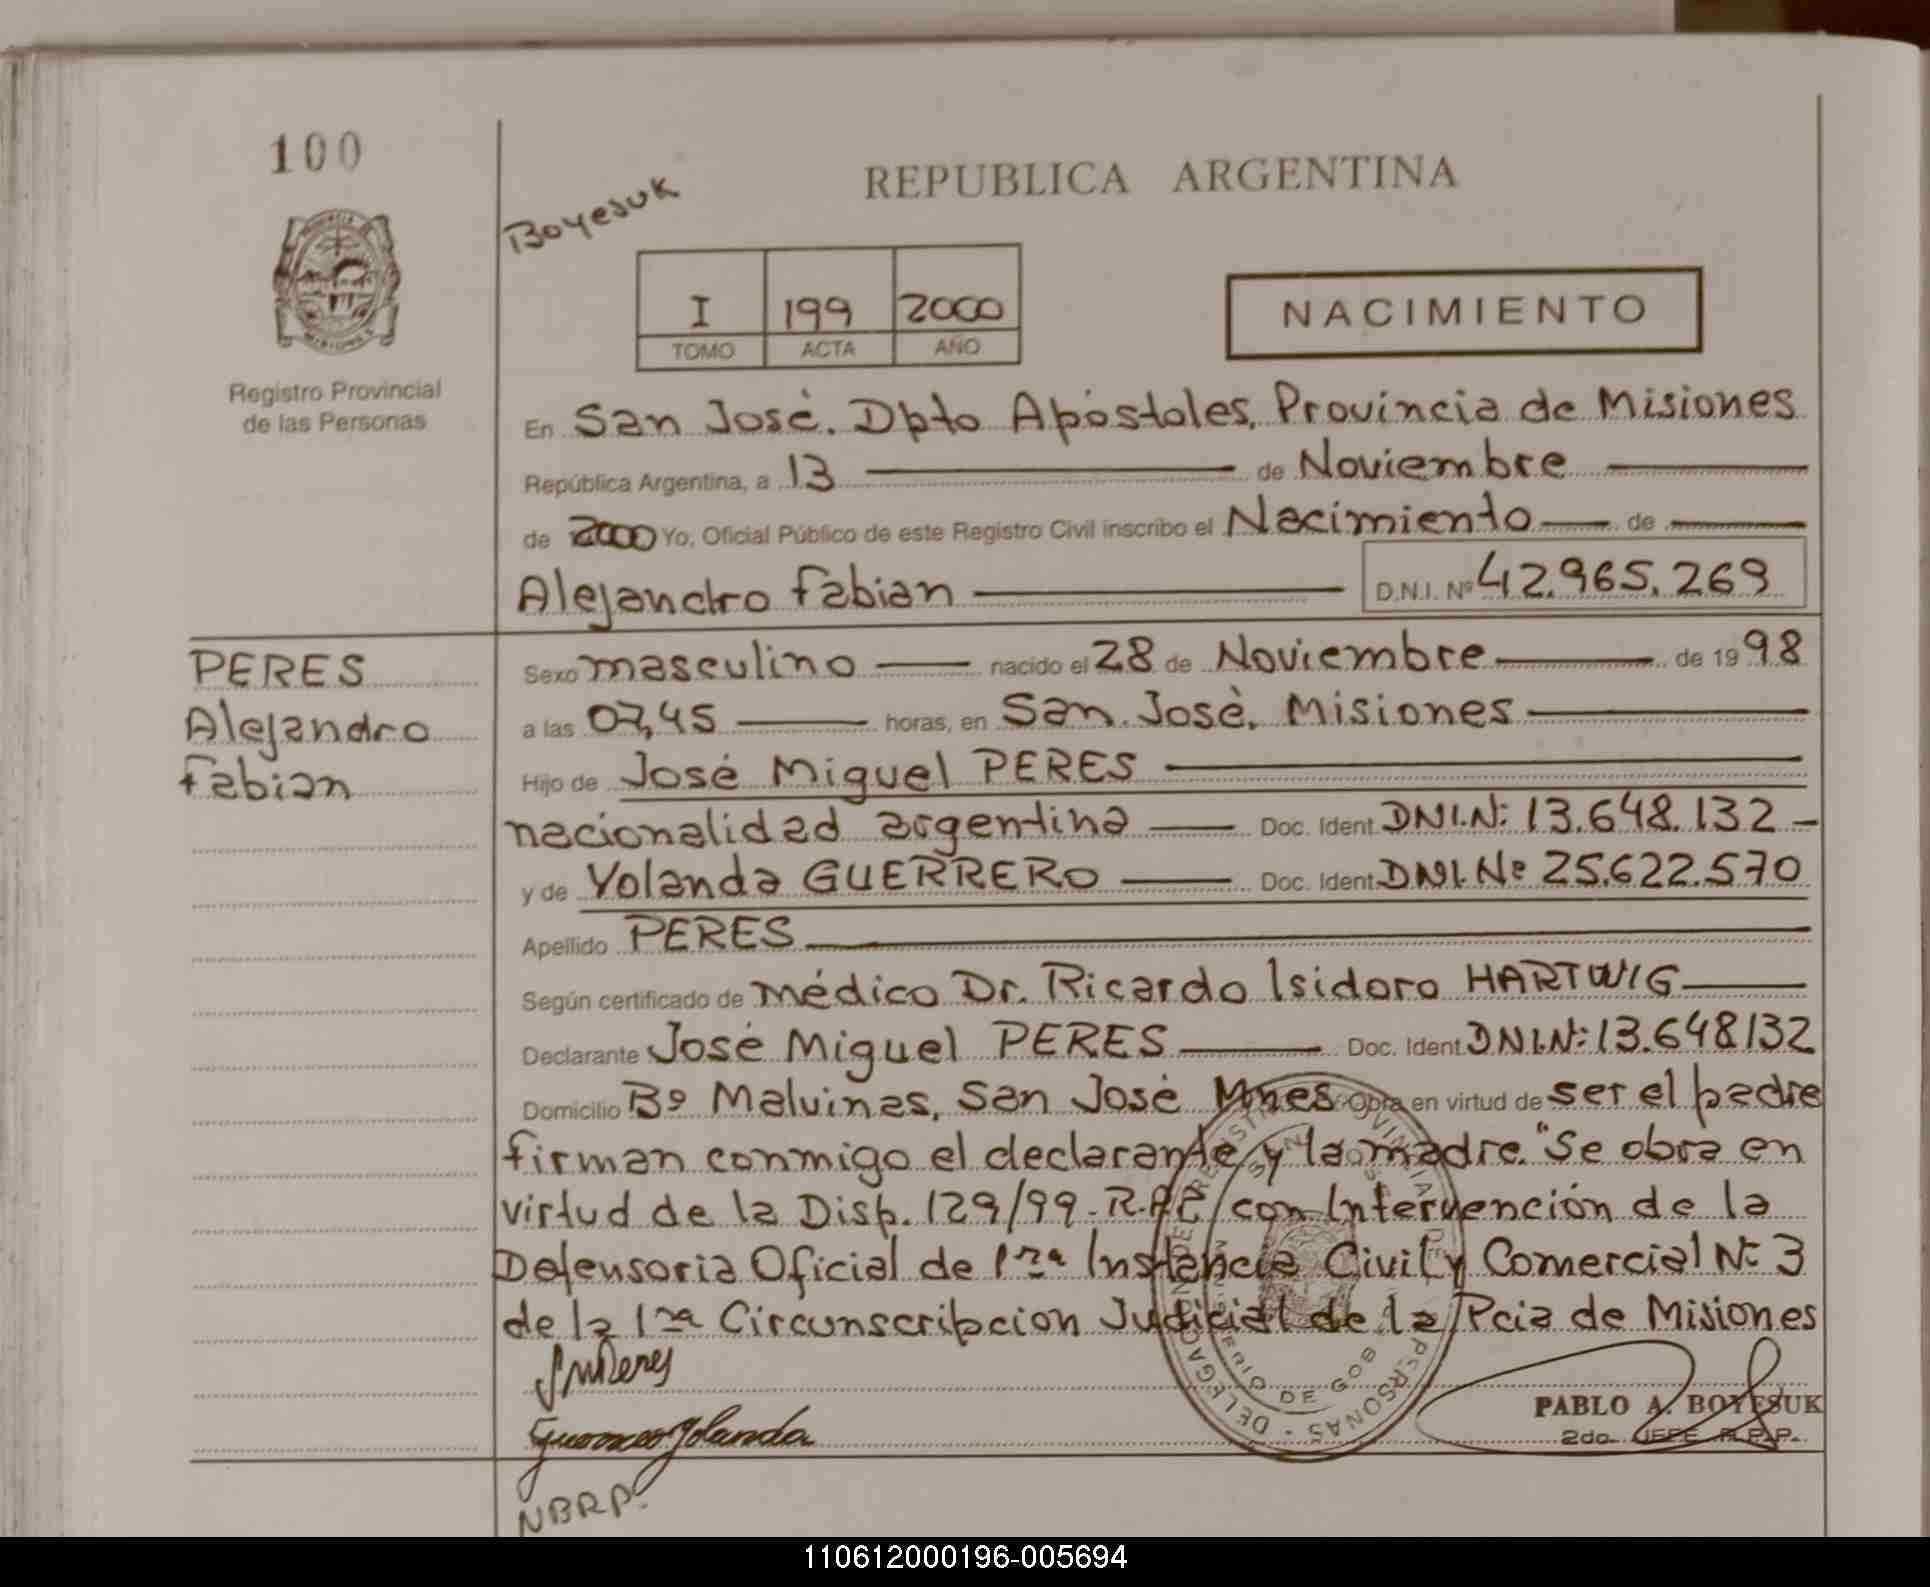 100
REPUBLICA ARGENTINA
Boyesuk
I 199 2000
TOMO ACTA AÑO
NACIMIENTO
Registro Provincial
de las Personas
En San José. Dpto Apóstoles, Provincia de Misiones
República Argentina, a 13 de Noviembre
de 2000 Yo, Oficial Público de este Registro Civil inscribo el Nacimiento de
Alejandro Fabian D.N.I. Nº 42.965.269
PERES
Alejandro
Fabian
Sexo masculino nacido el 28 de Noviembre de 1998
a las 07,45 horas, en San José, Misiones
Hijo de José Miguel PERES
nacionalidad argentina Doc. Ident. DNI.Nº: 13.648.132
y de Yolanda GUERRERO Doc. Ident. DNI.Nº 25.622.570
Apellido PERES
Según certificado de médico Dr. Ricardo Isidoro HARTWIG
Declarante José Miguel PERES Doc. Ident. DNI.Nº: 13.648132
Domicilio Bº Malvinas, San José Mnes. Obra en virtud de ser el padre
firman conmigo el declarante y la madre. "Se obra en
virtud de la Disp. 129/99-R.P.P. con Intervención de la
Defensoria Oficial de 1ra Instancia Civil y Comercial Nº 3
de la 1ra Circunscripcion Judicial de la Pcia de Misiones
Guerrero Yolanda
PABLO A. BOYESUK
2do. JEFE R.P.P.
NBRP.
110612000196-005694